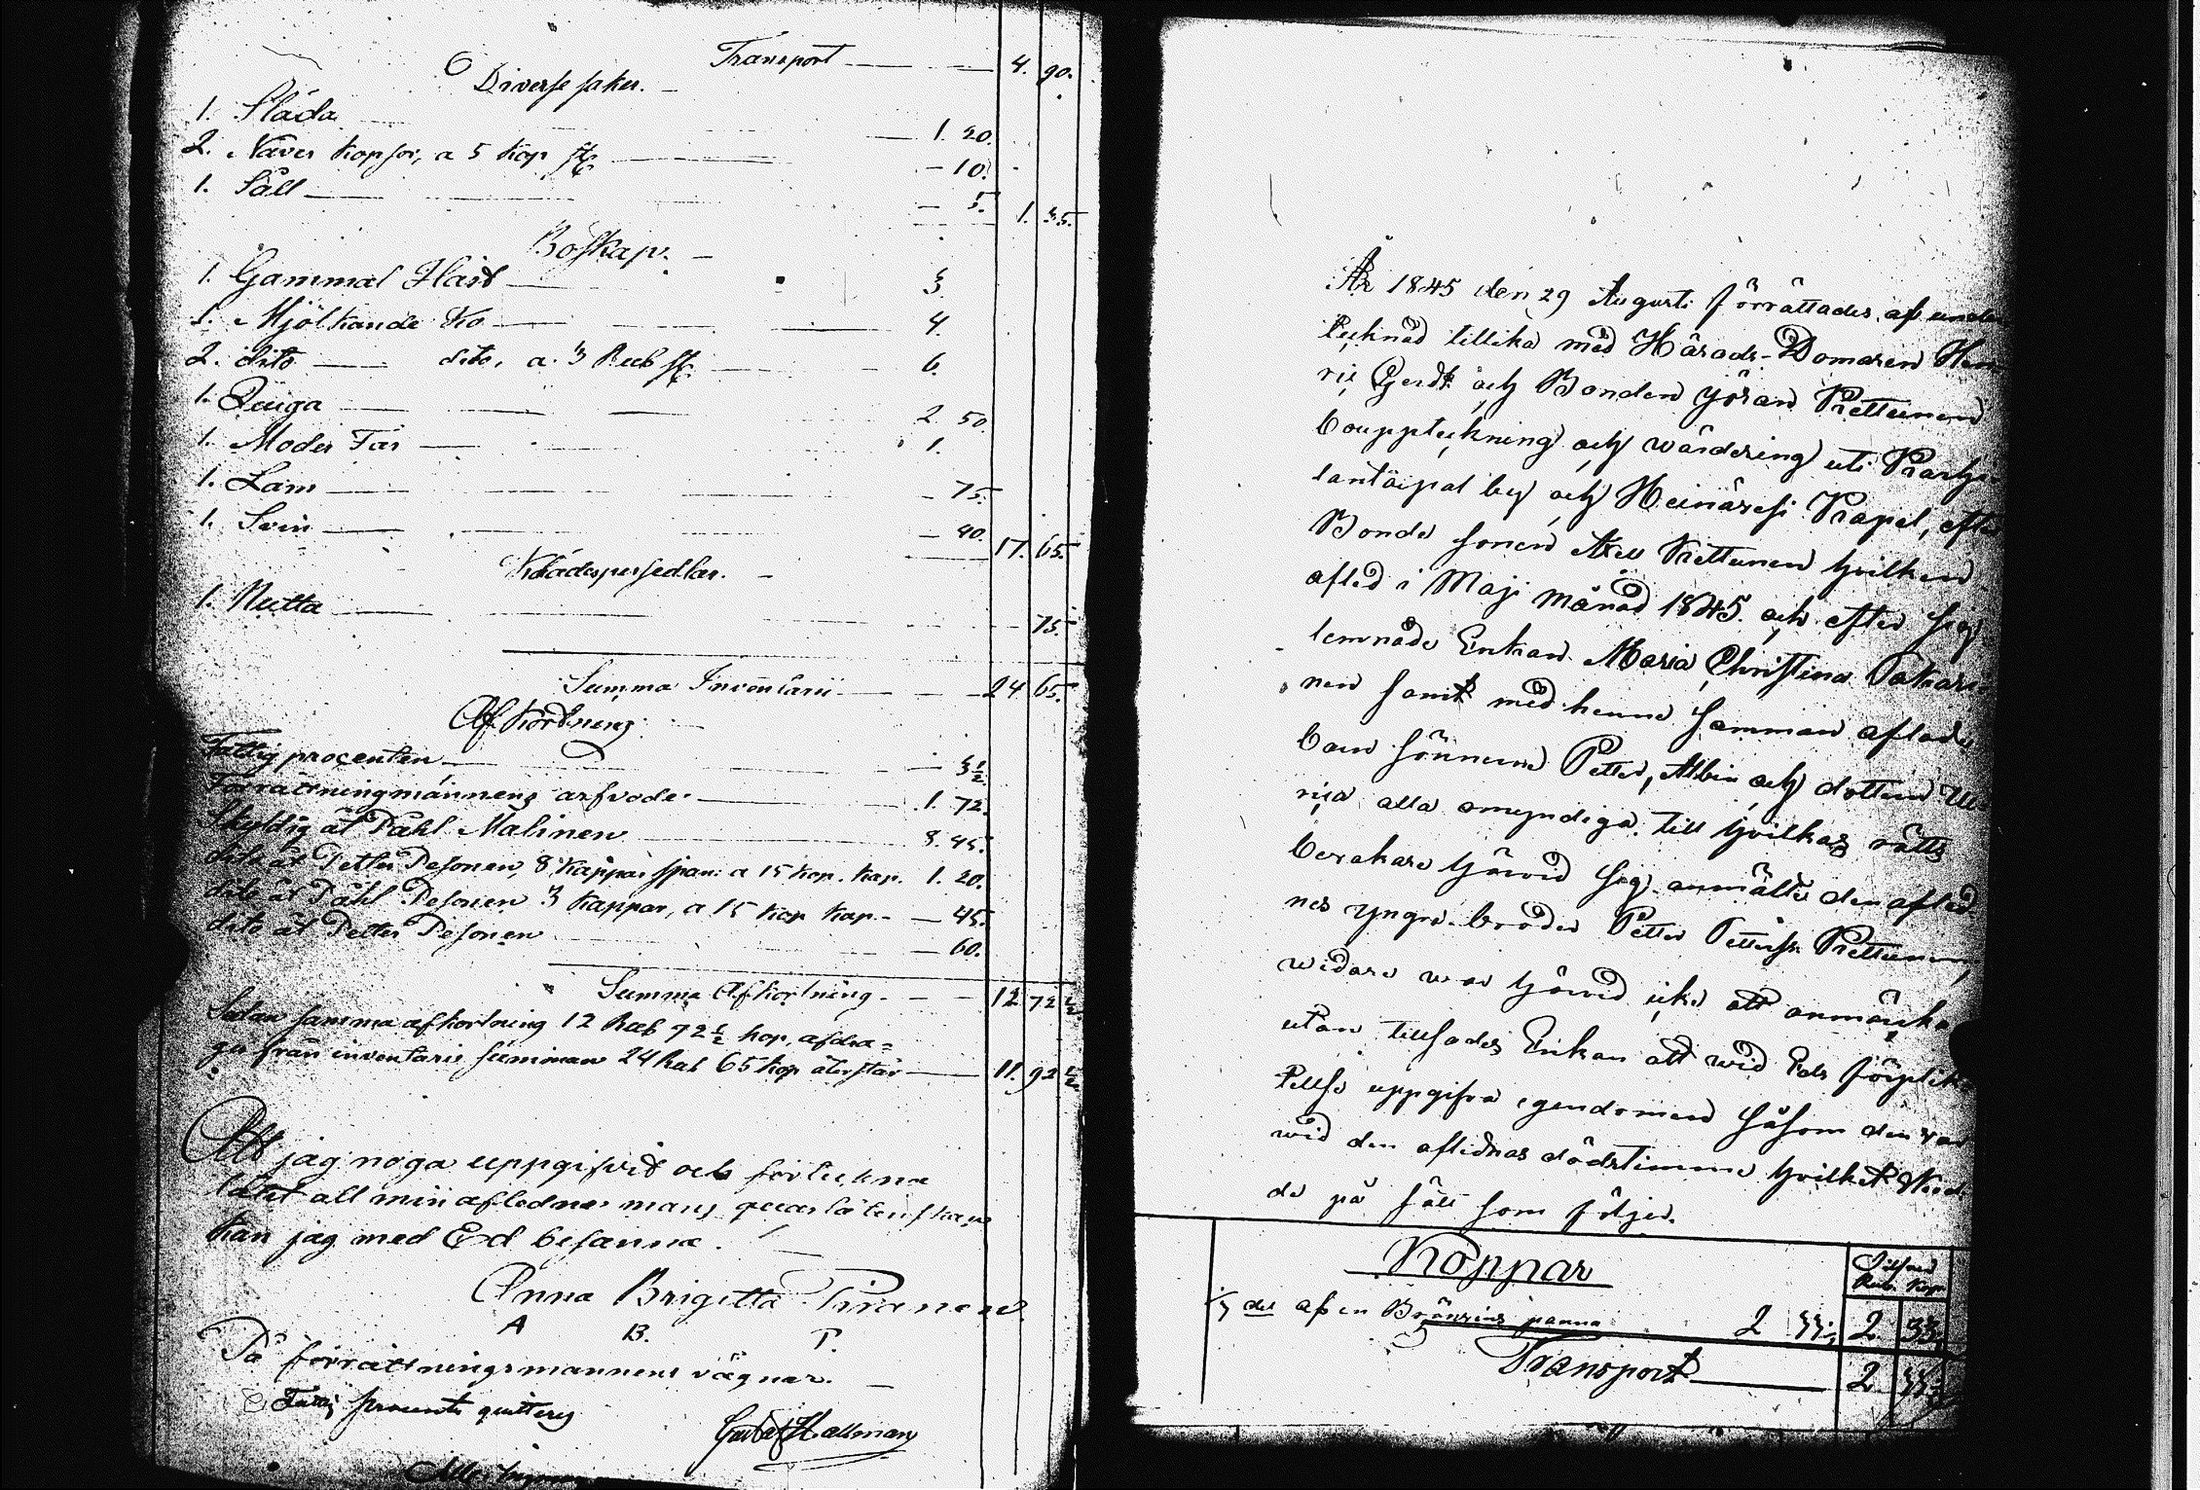 Transport 4. 90.
Diverse saker.
1. Släda 1. 20.
2. Näver kopsor, a 5 kop st 10.
1. Såll 5. 1. 35.
Boskap.
1. Gammal Häst 3.
1. Mjölkande Ko 4.
2. dito dito, a. 3 Rub st 6.
1. Quiga 2 50
1. Moder Får 1.
1. Lam 75.
1. Svin 40. 17. 65.
Klädespersedlar.
1. Mutta 75.
Summa Inventarii 24 65.
Afkortning
Fattig procenten 3½
Förrättningmännens arfvode 1. 72.
Skyldig åt Påhl Malinen 8. 45.
dito åt Petter Pesonen, 8 kappar span: a 15 kop. kap. 1. 20.
dito åt Påhl Pesonen 3 kappar, a 15 kop kap. 45.
dito åt Petter Pesonen 60.
Summa Afkortning 12 72 ½
Sedan samma afkortning 12 Rub 72½ kop. afdra=
ges från inventarii summan 24 Rub 65 kop återstår 11. 92 ½
Att jag noga uppgifvit och förteckna
låtit all min aflednes mans qvarlåtenskap
kan jag med Ed besanna.
Anna Brigitta Piranen
A B. P.
På förrättningsmannens vägnar.
Fattig procents quitteras
Gustaf Hallman
År 1845 den 29 Augusti förrättades af under
tecknad tillika med Härads-Domaren Hen
ric Gerdt och Bonden Göran Prettunen
bouppteckning och wärdering uti
by och Heinäresi Kapel, efter
Bonde sonen Axel Prettunen hvilken
afled i Maji månad 1845. och efter sig
lemnade Enkan Maria Christina
nen samt med henne samman aflade
barn sönnerne Petter, Albin och dottren Ul
rica alla omyndiga, till hvilkas rätts
bevakare härvid sig anmälte den afled
nes yngre broder Petter Pettersson Prettunen,
widare war härvid icke att anmärka
utan tillsades Enkan att wid Eds förplik
telse uppgifva egendomen såsom den war
wid den aflidnas dödstimma hvilket skied
de på sätt som följer.
Koppar
Rub. Kop
del af en Brännvins panna 2 33. 2. 33.
Transport 2 33.